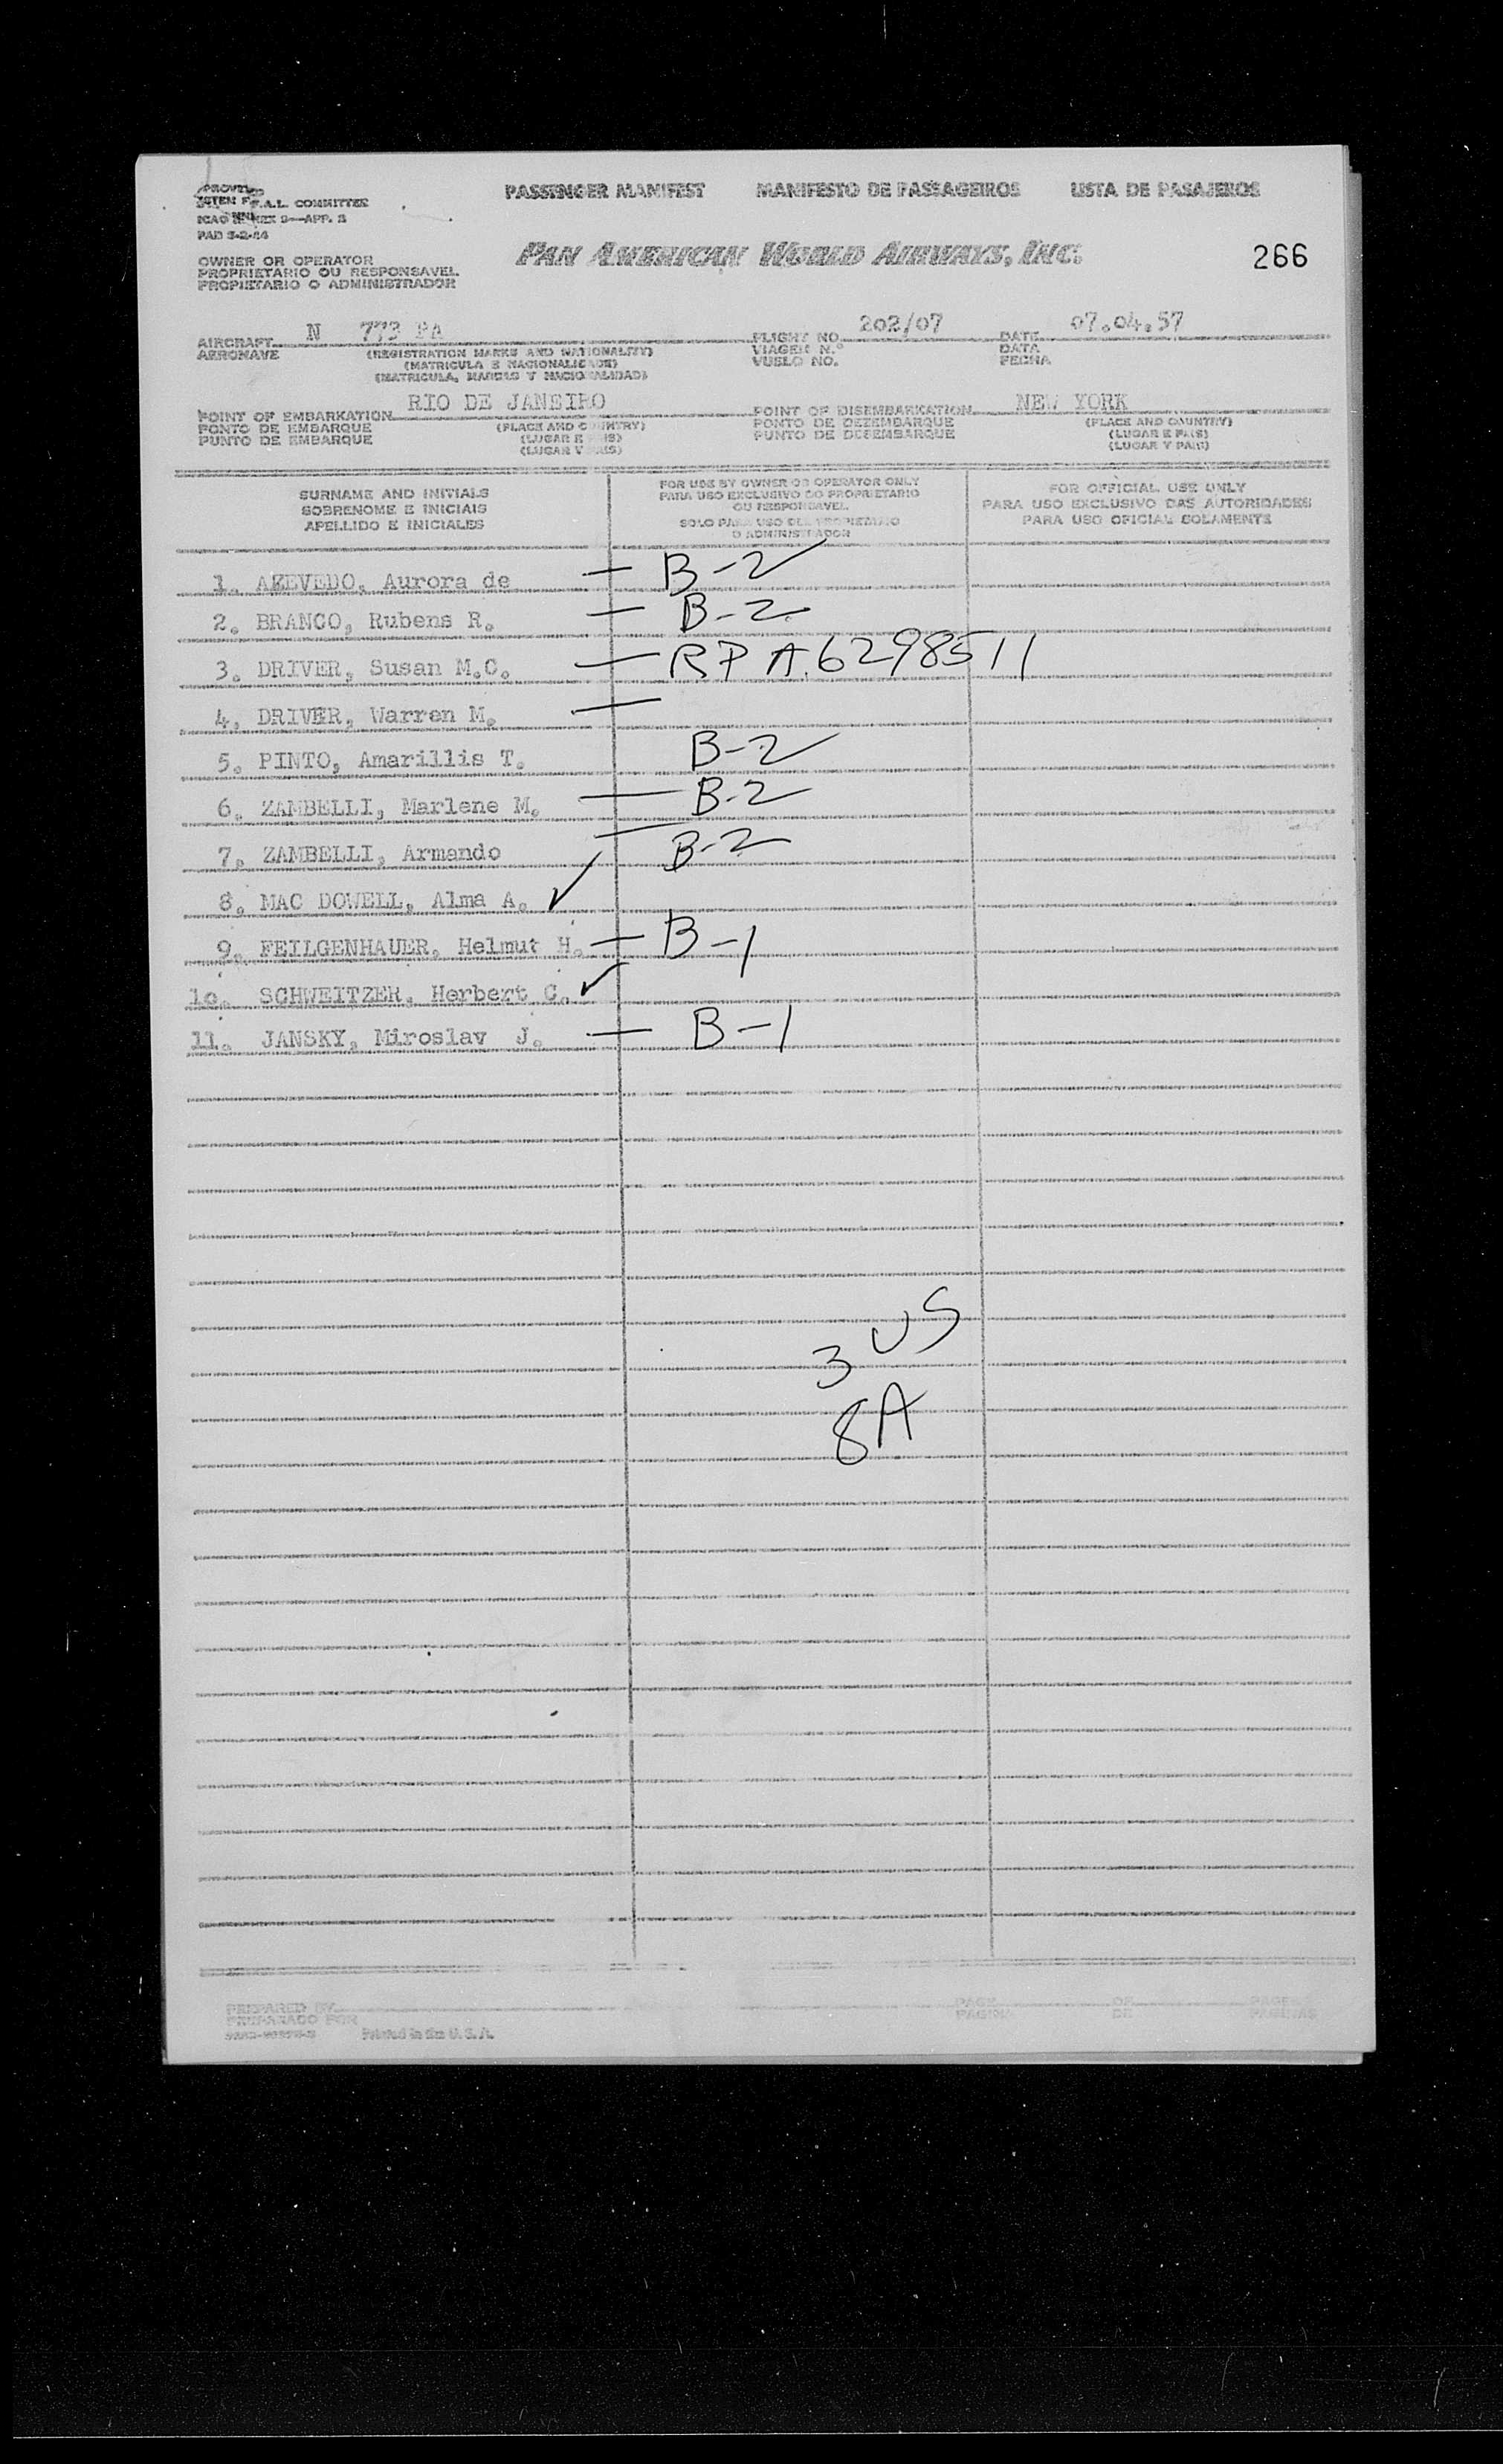 PASSENGER MANIFEST MANIFESTO DE PASSAGEIROS LISTA DE PASAJEROS
F.A.L. COMMITTEE
ICAO ANNEX 9—APP. 3
PAD
PAN AMERICAN WORLD AIRWAYS, INC.
266
OWNER OR OPERATOR
PROPRIETARIO OU RESPONSAVEL
PROPIETARIO O ADMINISTRADOR
AIRCRAFT N 773 PA FLIGHT NO. 202/07 DATE 07.04.57
AERONAVE (REGISTRATION MARKS AND NATIONALITY) VIAGEM N.º DATA
(MATRICULA E NACIONALIDADE) VUELO NO. FECHA
(MATRICULA, MARCAS Y NACIONALIDAD)
POINT OF EMBARKATION RIO DE JANEIRO POINT OF DISEMBARKATION NEW YORK
PONTO DE EMBARQUE (PLACE AND COUNTRY) PONTO DE DEZEMBARQUE (PLACE AND COUNTRY)
PUNTO DE EMBARQUE (LUGAR E PAIS) PUNTO DE DESEMBARQUE (LUGAR E PAIS)
(LUGAR Y PAIS) (LUGAR Y PAIS)
SURNAME AND INITIALS
SOBRENOME E INICIAIS
APELLIDO E INICIALES
FOR USE BY OWNER OR OPERATOR ONLY
PARA USO EXCLUSIVO DO PROPRIETARIO
OU RESPONSAVEL
SOLO PARA USO DEL PROPIETARIO
O ADMINISTRADOR
FOR OFFICIAL USE ONLY
PARA USO EXCLUSIVO DAS AUTORIDADES
PARA USO OFICIAL SOLAMENTE
1. AZEVEDO, Aurora de — B-2
2. BRANCO, Rubens R. — B-2
3. DRIVER, Susan M.C. — RP A6298511
4. DRIVER, Warren M. —
5. PINTO, Amarillis T. B-2
6. ZAMBELLI, Marlene M. — B-2
7. ZAMBELLI, Armando — B-2
8. MAC DOWELL, Alma A. ✓
9. FEILGENHAUER, Helmut H. — B-1
10. SCHWEITZER, Herbert C. ✓
11. JANSKY, Miroslav J. — B-1
3 US
8A
PREPARED BY PAGE OF PAGES
PREPARADO POR PAGINA DE PAGINAS
Printed in the U.S.A.